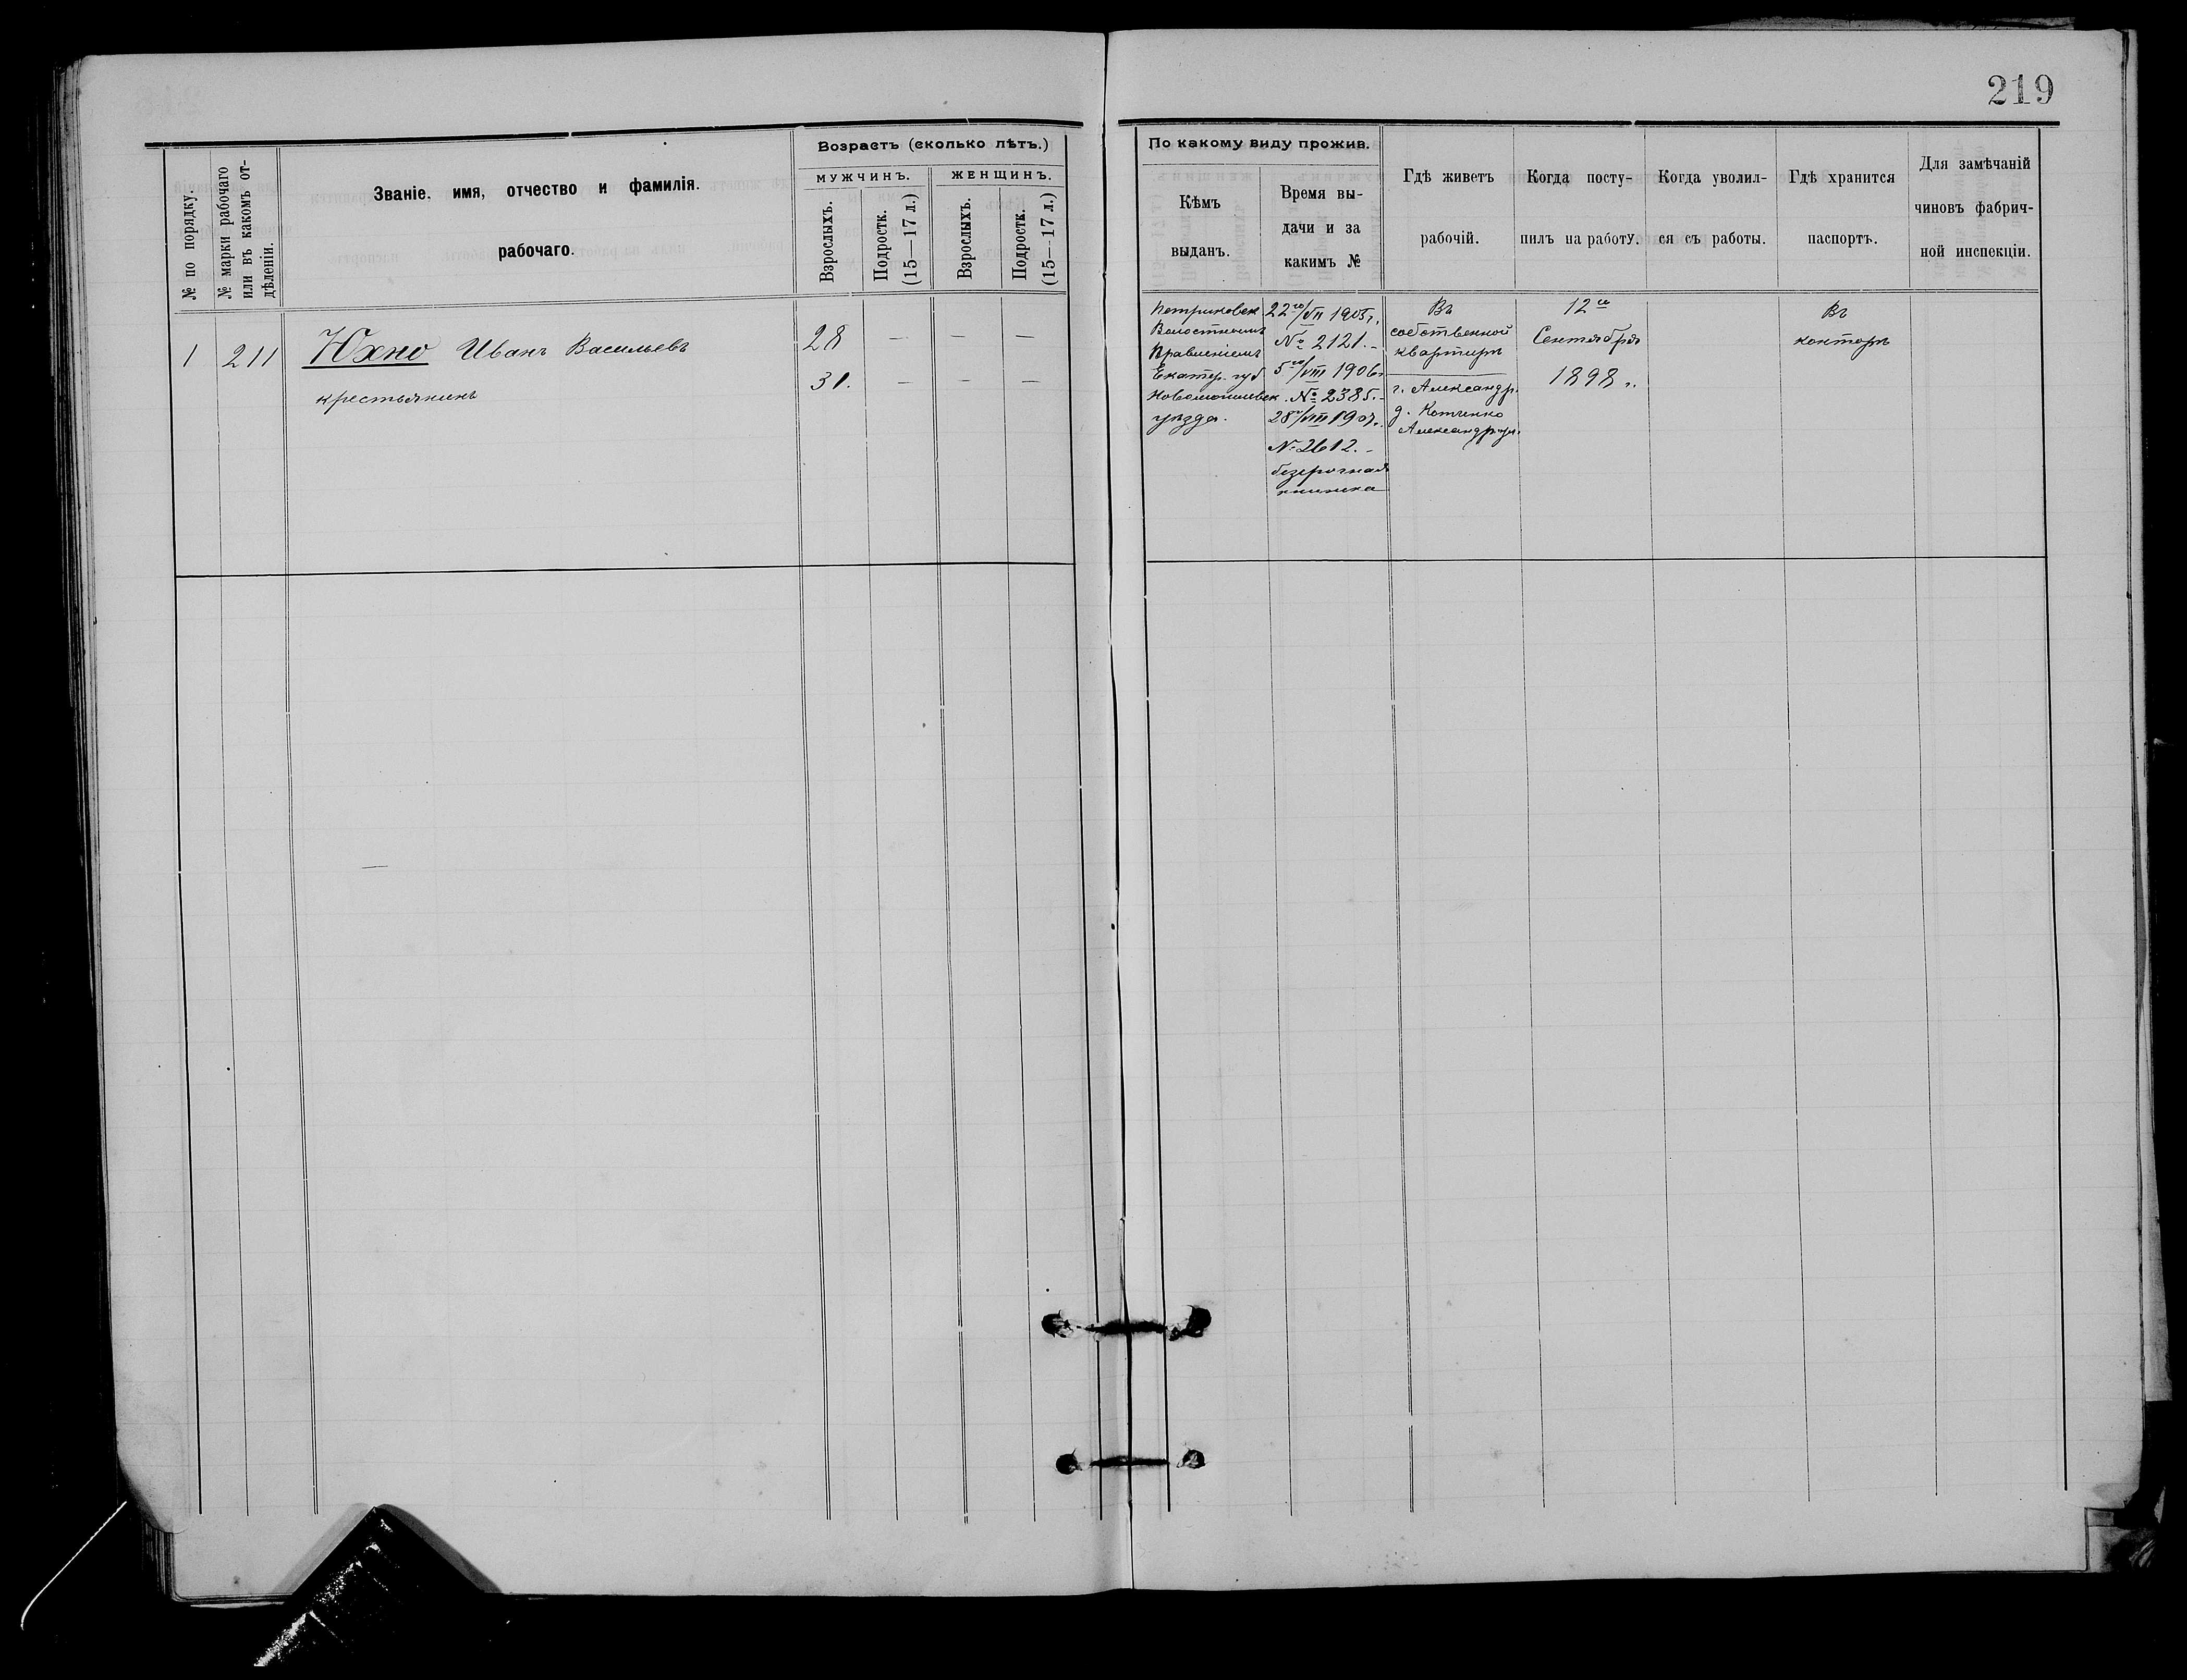 219
№ по порядку.
№ марки рабочаго
или въ какомъ от-
дѣленіи.
Званіе, имя, отчество и фамилія.
рабочаго.
Возрастъ (сколько лѣтъ.)
МУЖЧИНЪ.
ЖЕНЩИНЪ.
Взрослыхъ.
Подростк.
(15—17 л.)
Взрослыхъ.
Подростк.
(15—17 л.)
По какому виду прожив.
Кѣмъ
выданъ.
Время вы-
дачи и за
какимъ №
Гдѣ живетъ
рабочій.
Когда посту-
пилъ на работу.
Когда уволил-
ся съ работы.
Гдѣ хранится
паспортъ.
Для замѣчаній
чиновъ фабрич-
ной инспекціи.
1
211
Юхно Иванъ Васильевъ
крестьянинъ
28 — — —
31. — — —
Петриковск
Волостнымъ
Правленіемъ
Екатер. губ
Новомосковск
уѣзда.
22го/VII 1905 г.
№ 2121.-
5го/VIII 1906 г.
№ 2385.-
28го/VIII 1907 г.
№ 2612.-
безсрочная
книжка
Въ
собственной
квартирѣ
г. Александр.
д.
Александр.
12го
Сентября
1898 г.
Въ
конторѣ